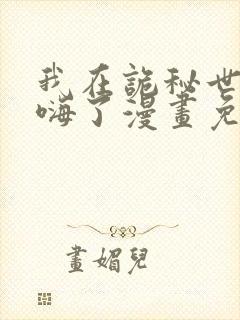 我在詭秘世
嗨了漫畫免
畫媚兒